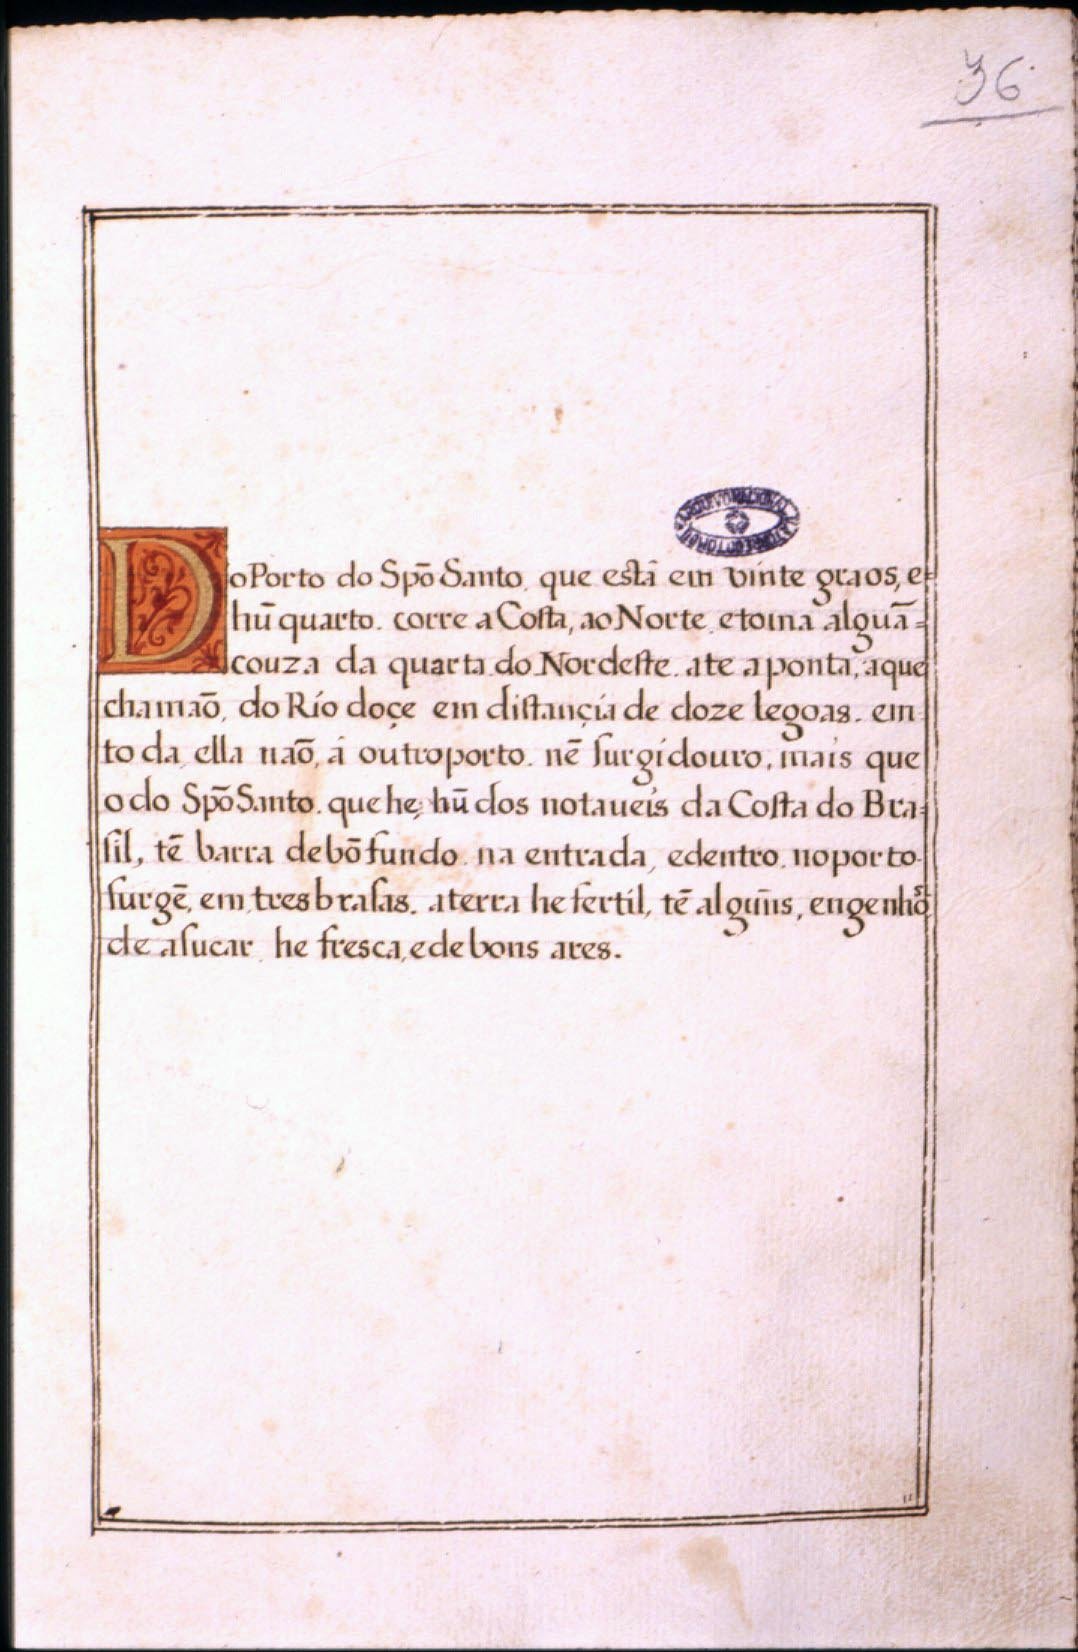 36
ARQUIVO NACIONAL DA TORRE DO TOMBO
Do Porto do Spõ Santo, que está em vinte graos, e=
hũ quarto. corre a Costa, ao Norte, e toma alguã=
couza da quarta do Nordeste. ate a ponta, aque
chamaõ, do Río doçe em distançia de doze legoas. em
toda ella naõ, á outro porto. nẽ surgidouro, mais que
o do Spõ Santo. que he, hũ dos notaueis da Costa do Bra=
sil, tẽ barra de bõ fundo na entrada, e dentro. no porto
surgẽ, em tres brasas. a terra he fertil, tẽ algũns, engenhos
de asucar he fresca, e de bons ares.